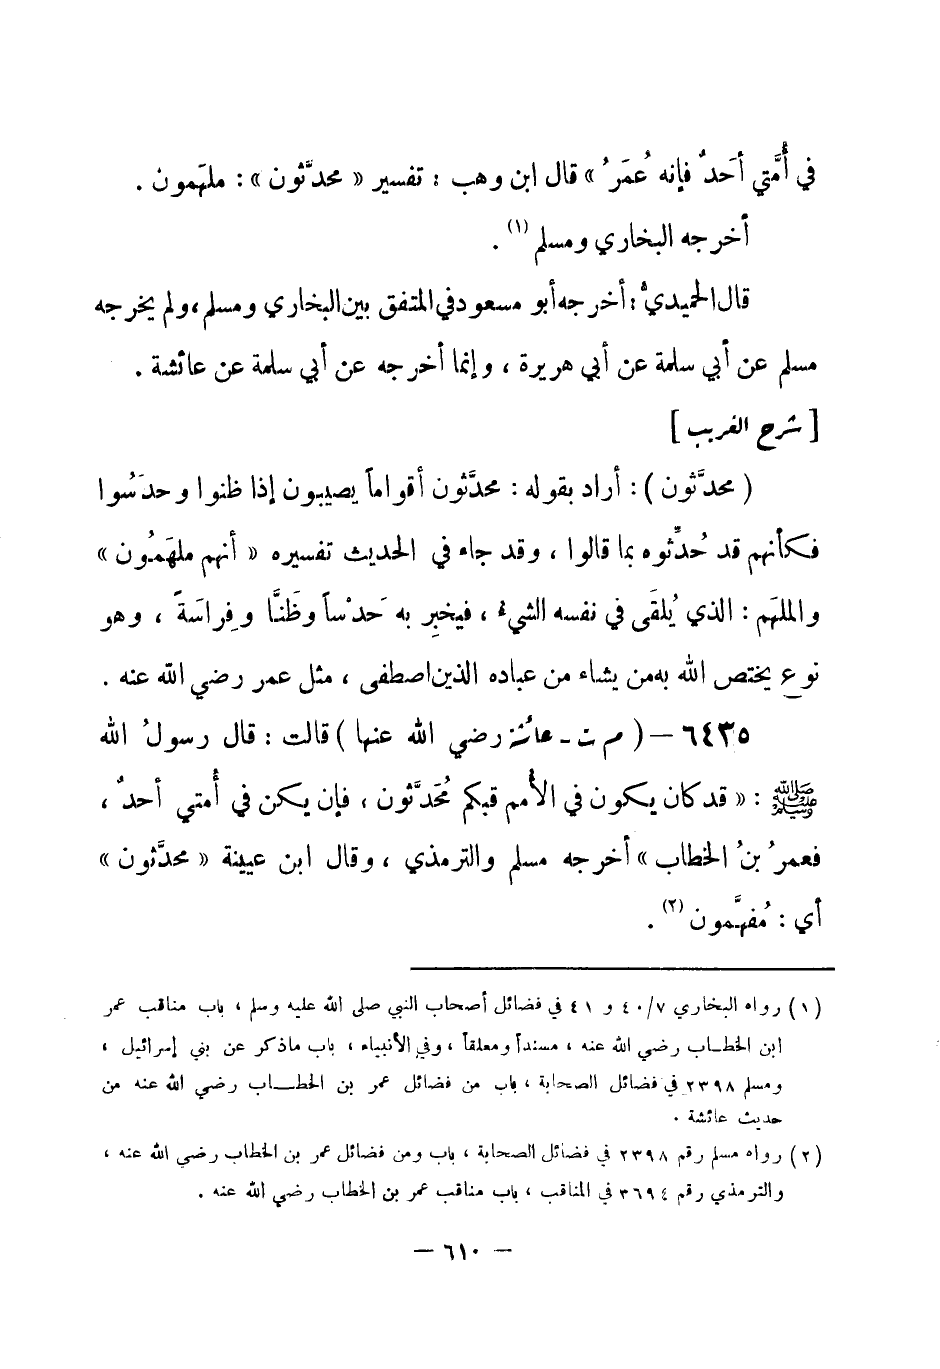 في أُمَّتي أَحَدٌ فإنه عُمَرُ » قال ابن وهب : تفسير « محدَّثون » : ملهَمون .
أخرجه البخاري ومسلم (١) .
قال الحميديُّ : أخرجه أبو مسعود في المتفق بين البخاري ومسلم ، ولم يخرجه
مسلم عن أبي سلمة عن أبي هريرة ، وإنما أخرجه عن أبي سلمة عن عائشة .
[ شرح الغريب ]
( محدَّثون ) : أراد بقوله : محدَّثون أقواماً يصيبون إذا ظنوا وحدَسُوا
فكأنهم قد حُدِّثوه بما قالوا ، وقد جاء في الحديث تفسيره « أنهم ملهَمُون »
والملهَم : الذي يُلقَى في نفسه الشيء ، فيخبِر به حَدْساً وظَنَّا وفِراسَةً ، وهو
نوع يختص الله به من يشاء من عباده الذين اصطفى ، مثل عمر رضي الله عنه .
٦٤٣٥ – ( م ت ـ عائشة رضي الله عنها ) قالت : قال رسولُ الله
ﷺ : « قد كان يكون في الأُمم قبلكم مُحَدَّثون ، فإن يكن في أُمتي أحدٌ ،
فعمرُ بنُ الخطاب » أخرجه مسلم والترمذي ، وقال ابن عيينة « محدَّثون »
أي : مُفهَّمون (٢) .
(١) رواه البخاري ٤٠/٧ و ٤١ في فضائل أصحاب النبي صلى الله عليه وسلم ، باب مناقب عمر
ابن الخطـاب رضي الله عنه ، مسنداً ومعلقاً ، وفي الأنبياء ، باب ماذكر عن بني إسرائيل ،
ومسلم ٢٣٩٨ في فضائل الصحابة ، باب من فضائل عمر بن الخطـــاب رضي الله عنه من
حديث عائشة .
(٢) رواه مسلم رقم ٢٣٩٨ في فضائل الصحابة ، باب ومن فضائل عمر بن الخطاب رضي الله عنه ،
والترمذي رقم ٣٦٩٤ في المناقب ، باب مناقب عمر بن الخطاب رضي الله عنه .
– ٦١٠ –